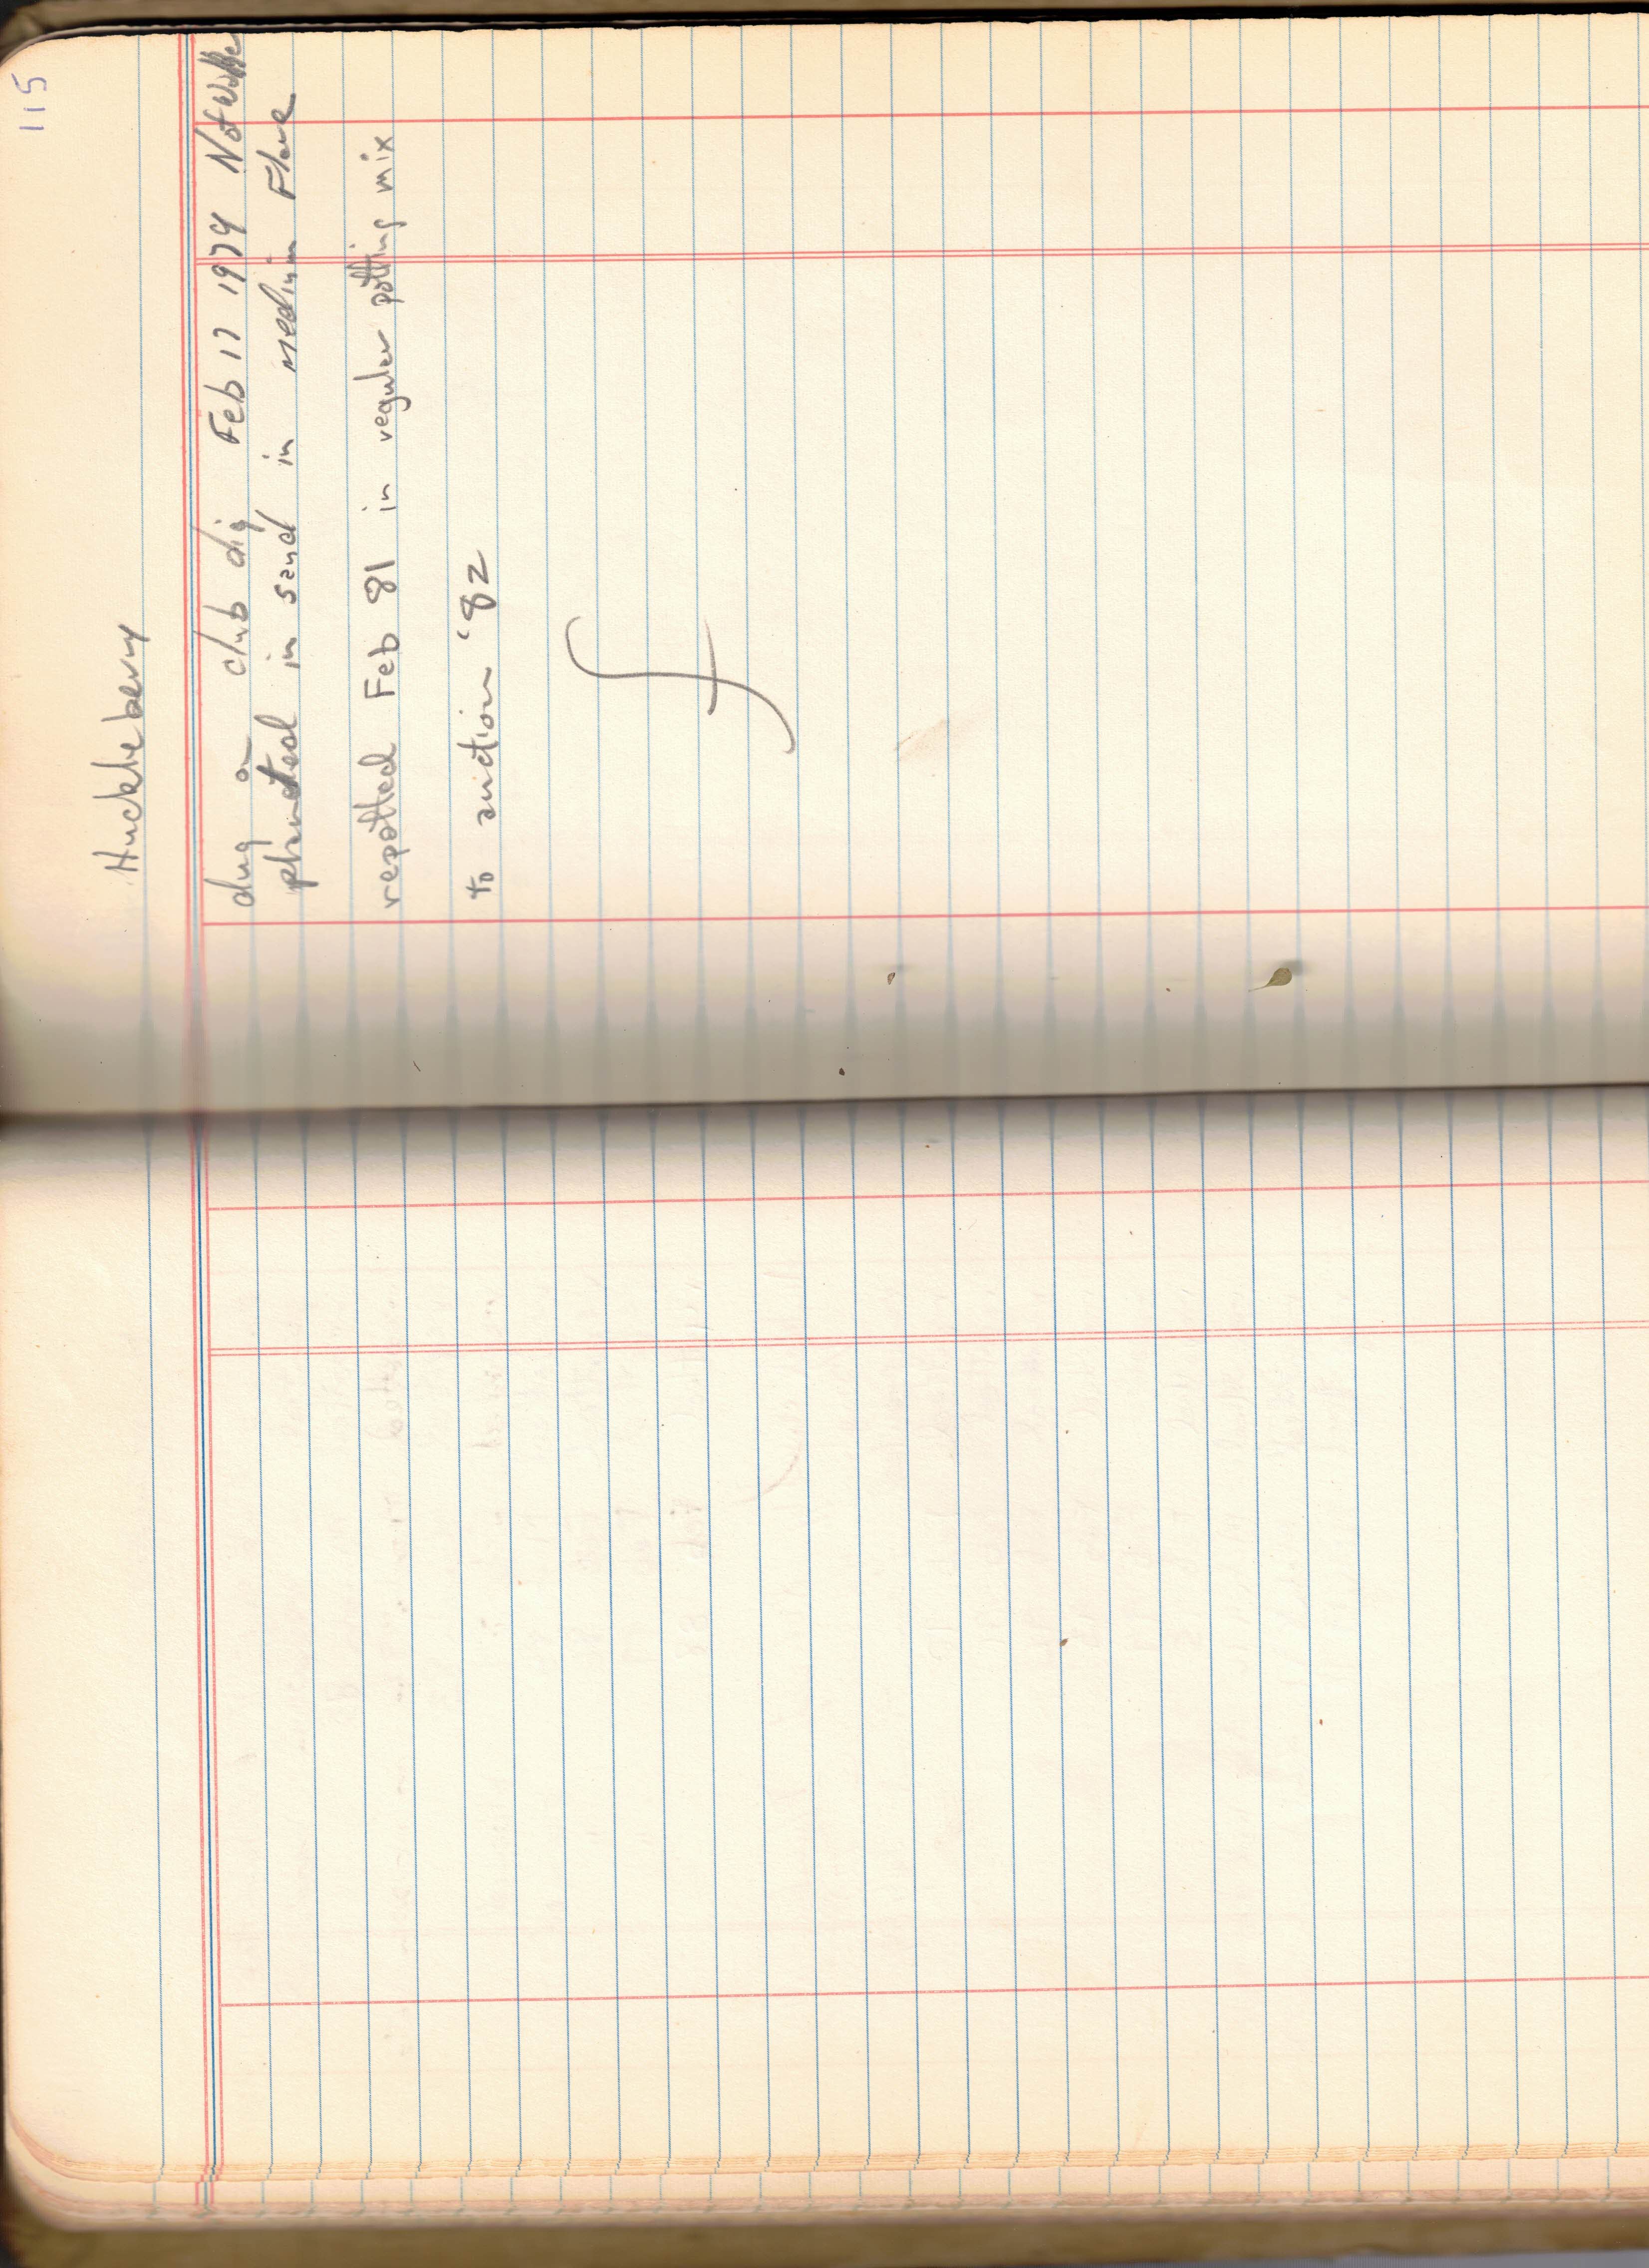 115
Huckleberry
dug on club dig Feb 17 1979 Not
planted in sand in medium
repotted Feb 81 in regular potting mix
to auction '82
f